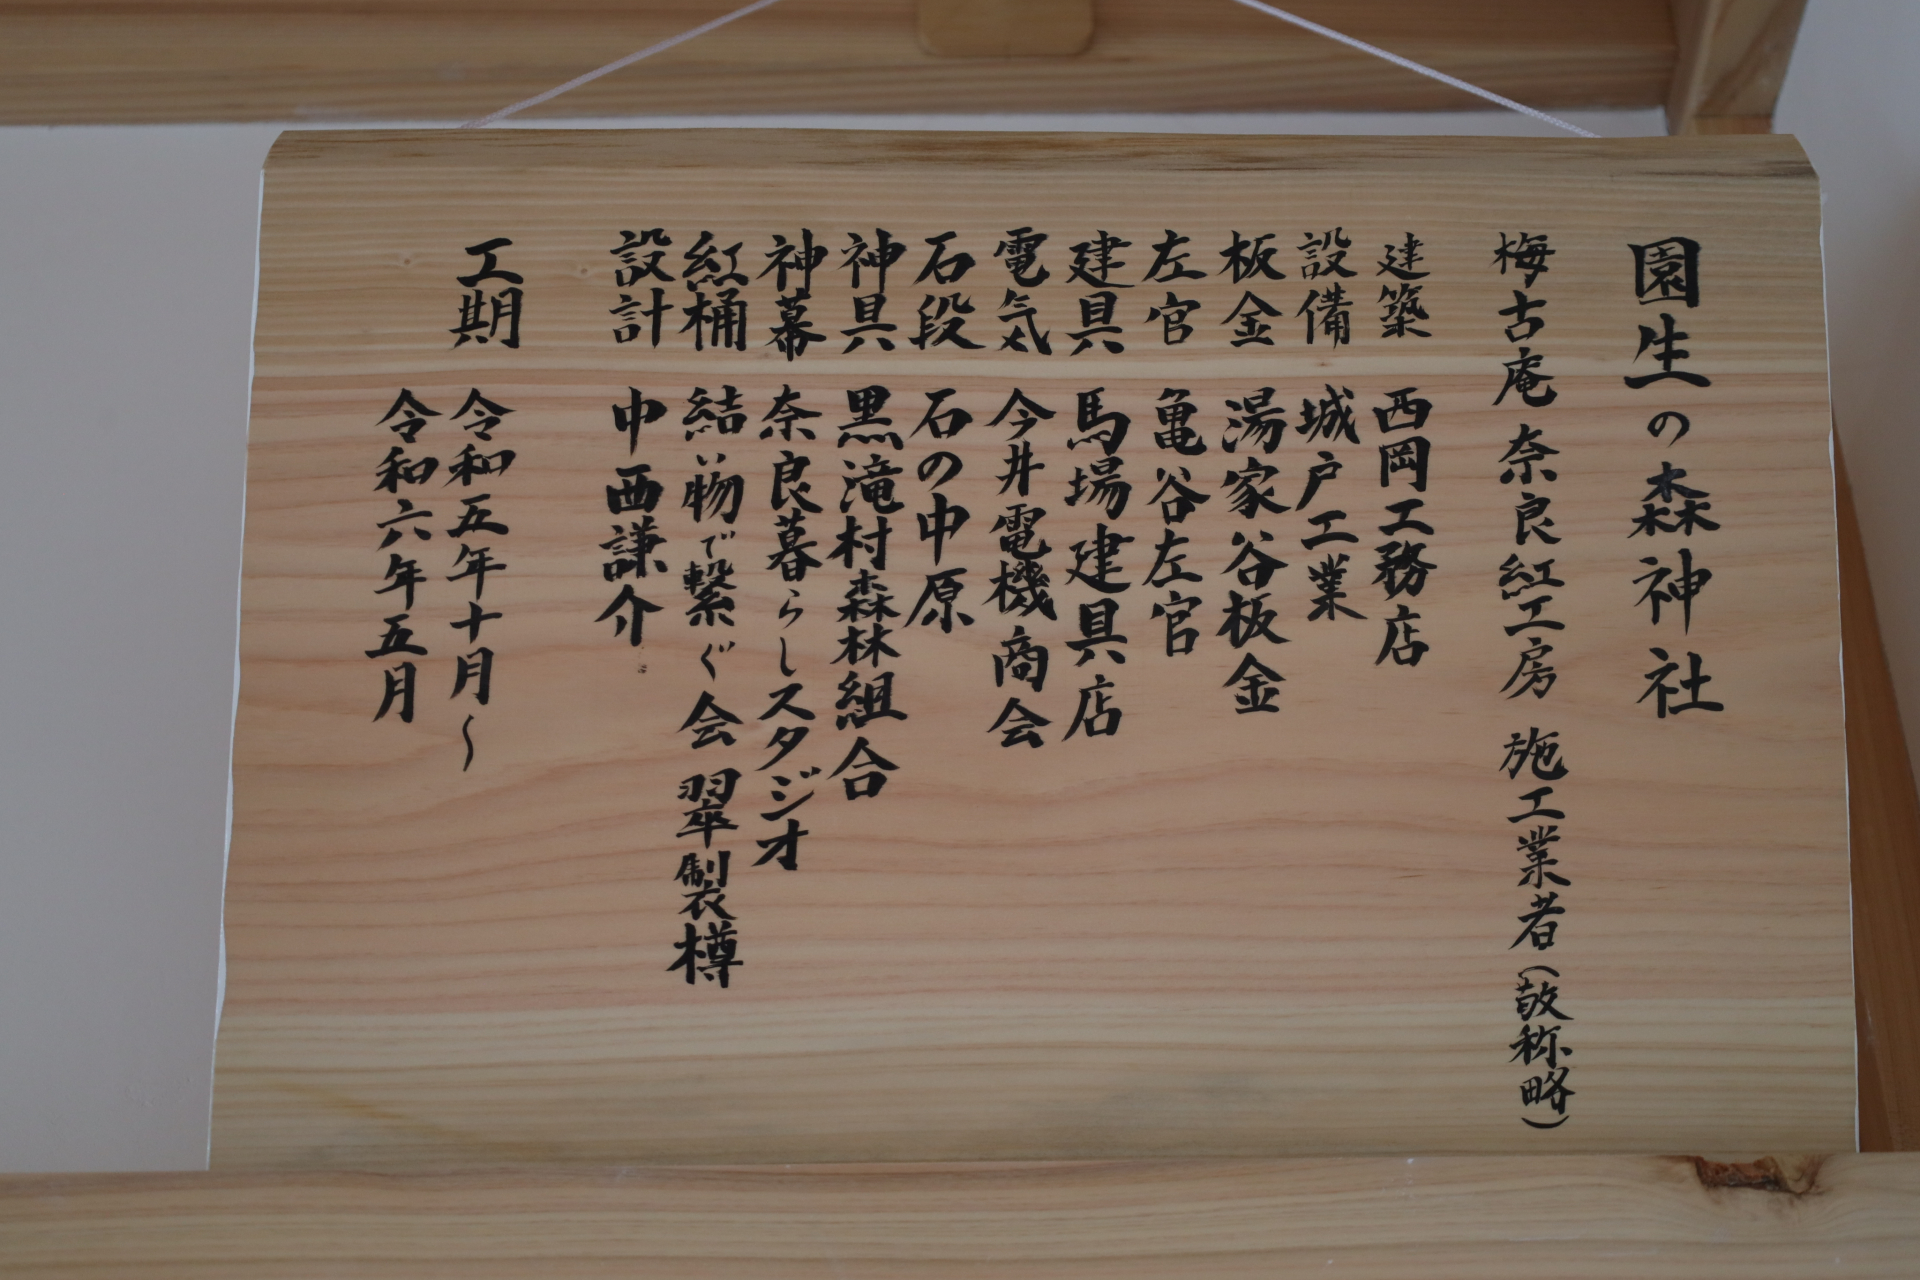 園生の森神社
梅古庵 奈良紅工房 施工業者(敬称略)
建築 西岡工務店
設備 城戸工業
板金 湯家谷板金
左官 亀谷左官
建具 馬場建具店
電気 今井電機商会
石段 石の中原
神具 黒滝村森林組合
神幕 奈良暮らしスタジオ
紅桶 結い物で繋ぐ会 翠製樽
設計 中西謙介
工期 令和五年十月〜
令和六年五月